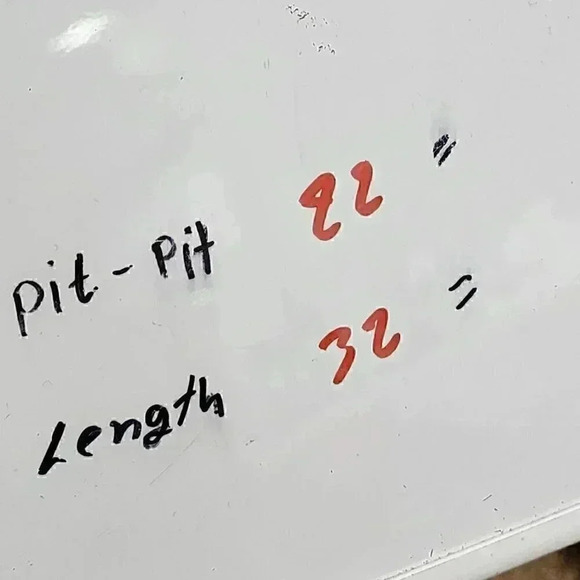 pit - pit 22 "
Length 32 "